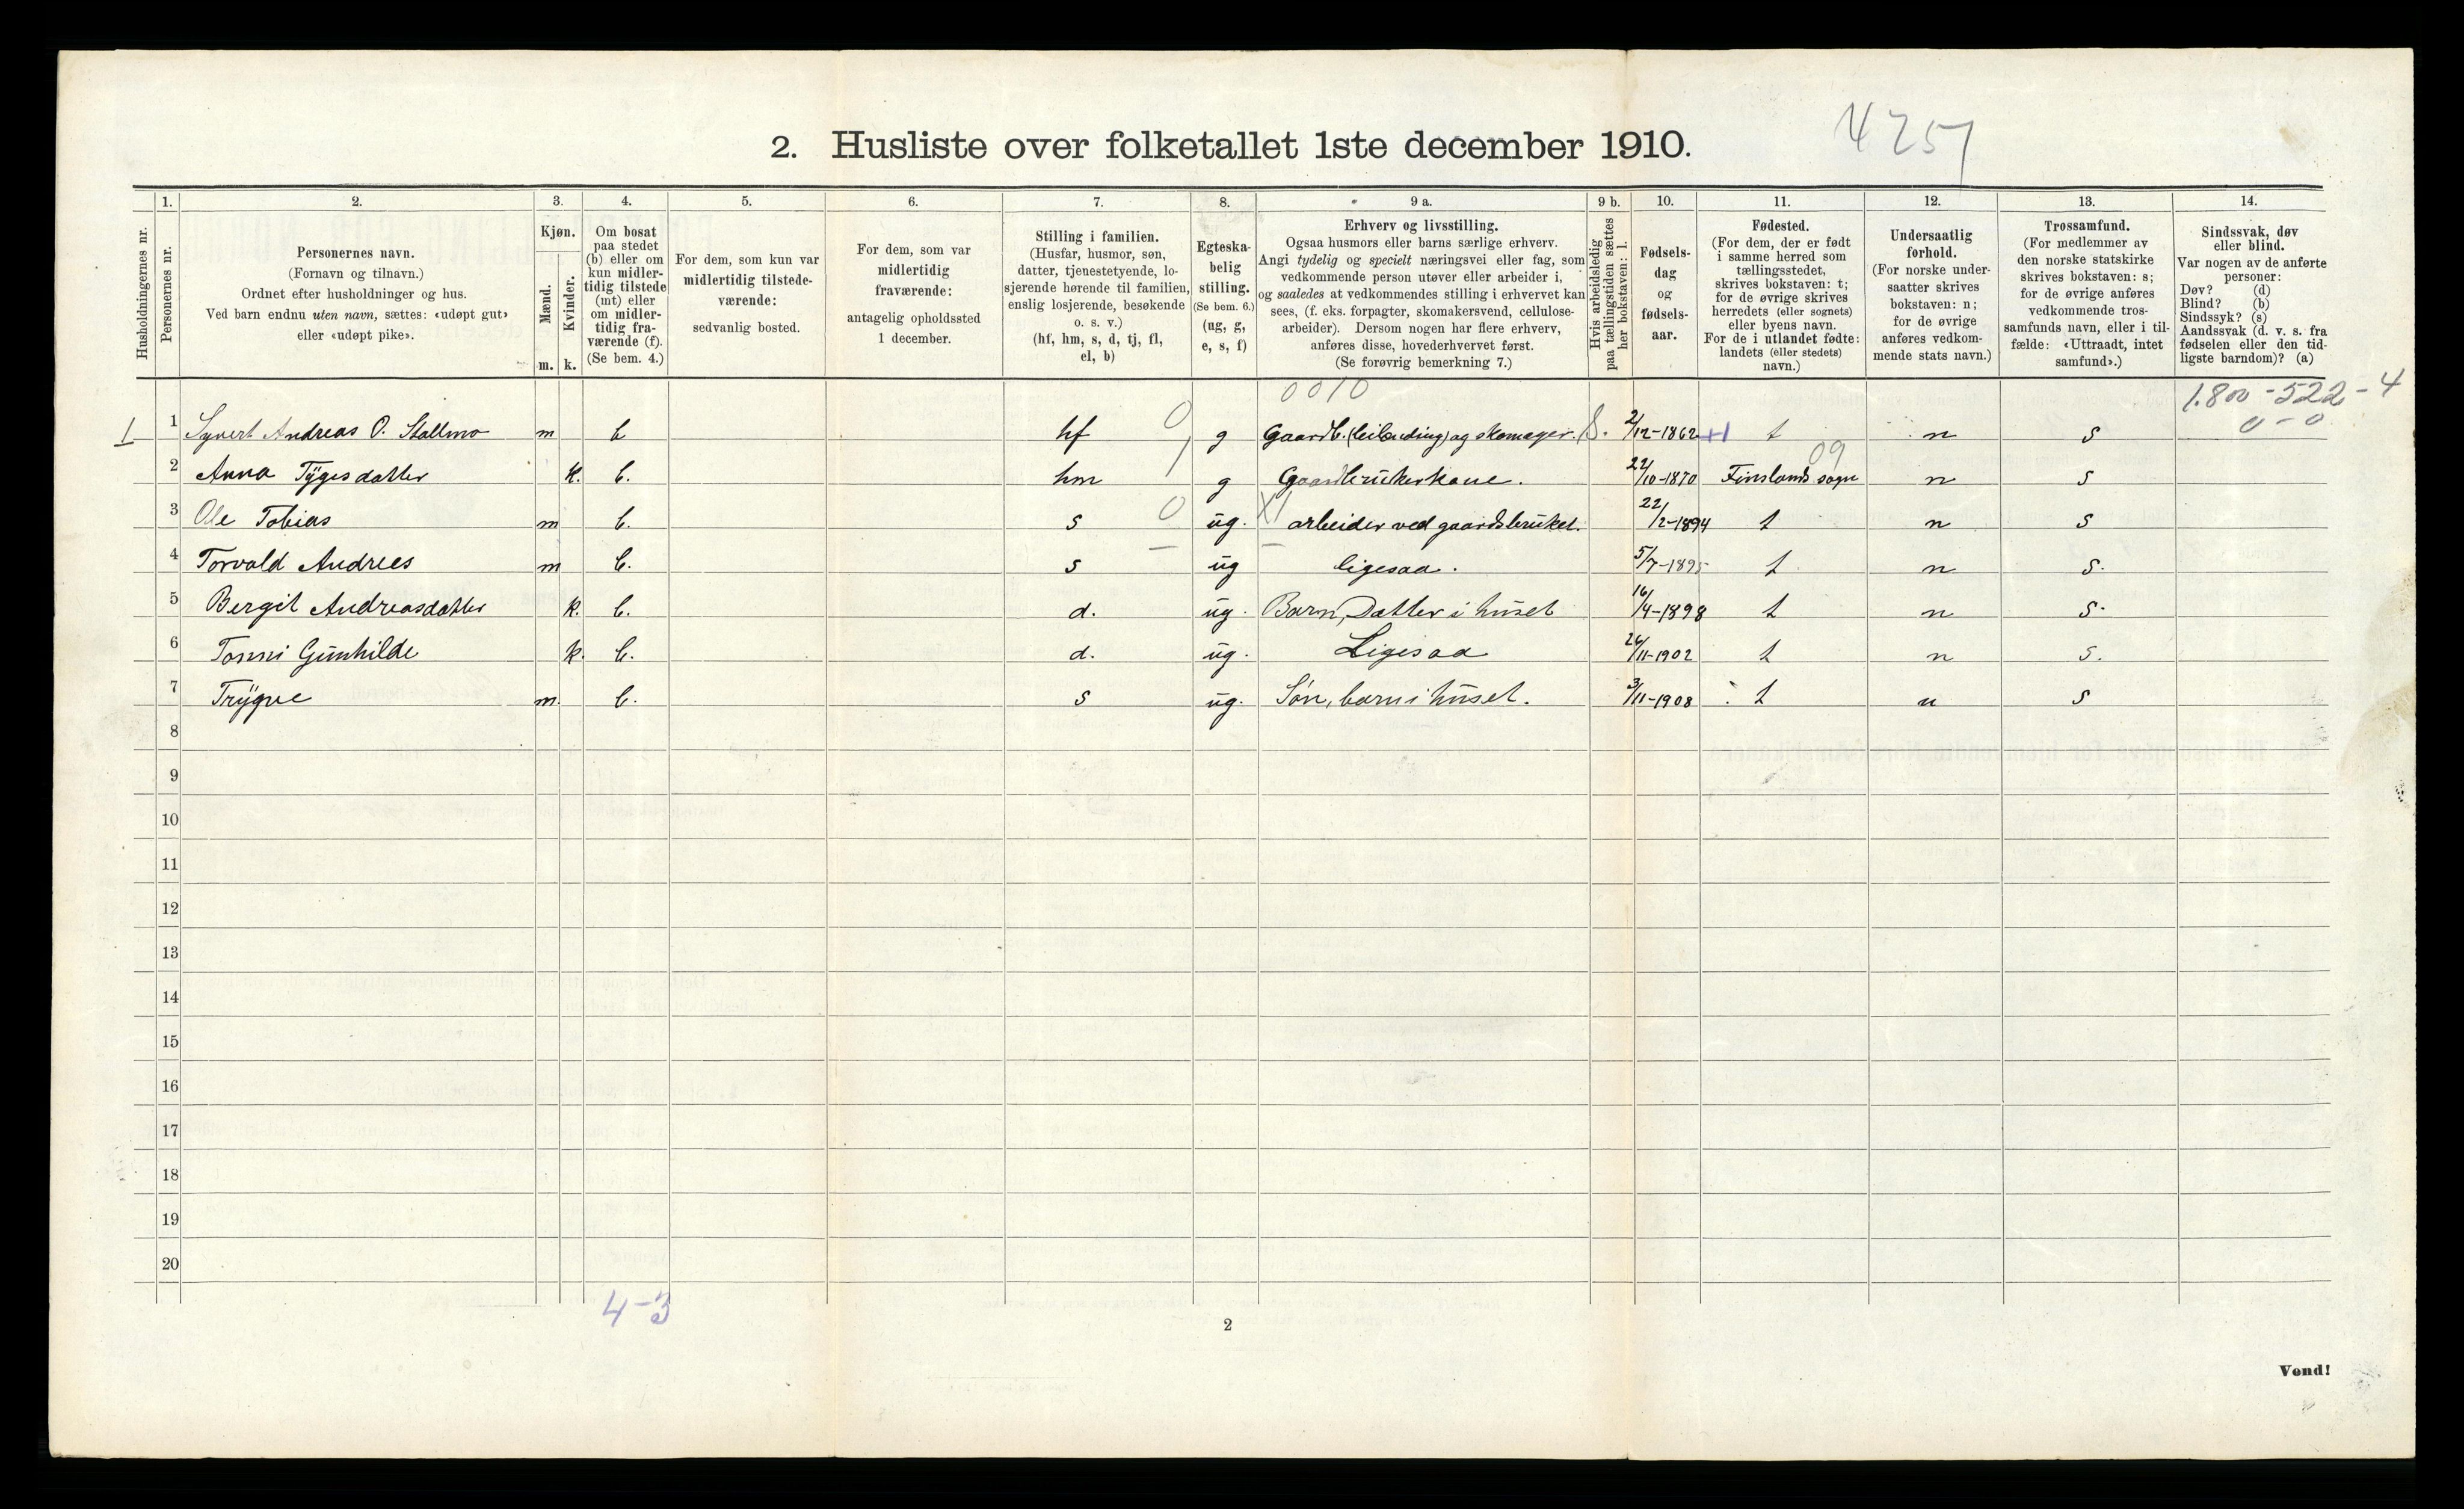 4257
2. Husliste over folketallet 1ste december 1910.
Husholdningernes nr.
1. Personernes nr.
2. Personernes navn. (Fornavn og tilnavn.) Ordnet efter husholdninger og hus. Ved barn endnu uten navn, sættes: «udøpt gut» eller «udøpt pike».
3. Kjøn. Mænd. m. Kvinder. k.
4. Om bosat paa stedet (b) eller om kun midlertidig tilstede (mt) eller om midlertidig fraværende (f). (Se bem. 4.)
5. For dem, som kun var midlertidig tilstedeværende: sedvanlig bosted.
6. For dem, som var midlertidig fraværende: antagelig opholdssted 1 december.
7. Stilling i familien. (Husfar, husmor, søn, datter, tjenestetyende, losjerende hørende til familien, enslig losjerende, besøkende o. s. v.) (hf, hm, s, d, tj, fl, el, b)
8. Egteskabelig stilling. (Se bem. 6.) (ug, g, e, s, f)
9 a. Erhverv og livsstilling. Ogsaa husmors eller barns særlige erhverv. Angi tydelig og specielt næringsvei eller fag, som vedkommende person utøver eller arbeider i, og saaledes at vedkommendes stilling i erhvervet kan sees, (f. eks. forpagter, skomakersvend, cellulosearbeider). Dersom nogen har flere erhverv, anføres disse, hovederhvervet først. (Se forøvrig bemerkning 7.)
9 b. Hvis arbeidsledig paa tællingstiden sættes her bokstaven: l.
10. Fødselsdag og fødselsaar.
11. Fødested. (For dem, der er født i samme herred som tællingsstedet, skrives bokstaven: t; for de øvrige skrives herredets (eller sognets) eller byens navn. For de i utlandet fødte: landets (eller stedets) navn.)
12. Undersaatlig forhold. (For norske undersaatter skrives bokstaven: n; for de øvrige anføres vedkommende stats navn.)
13. Trossamfund. (For medlemmer av den norske statskirke skrives bokstaven: s; for de øvrige anføres vedkommende trossamfunds navn, eller i tilfælde: «Uttraadt, intet samfund».)
14. Sindssvak, døv eller blind. Var nogen av de anførte personer: Døv? (d) Blind? (b) Sindssyk? (s) Aandssvak (d. v. s. fra fødselen eller den tidligste barndom)? (a)
0010
1.800 - 522 - 4
0 - 0
1 1 Syvert Andreas O. Stallmo m b hf 0 g Gaardb. (leilending) og skomager. 2/12-1862 +1 t n s
2 Anna Tygesdatter k. b. hm g Gaardbrukerkone. 22/10-1870 Finslands sogn 09 n s
3 Ole Tobias m b. s 0 ug. arbeider ved gaardsbruket. 22/2-1894 t n s
4 Torvald Andrees m b. s ug ligesaa. 5/7-1895 t n s.
5 Bergit Andreasdatter k. b. d. ug. Barn, Datter i huset 16/4-1898 t n s.
6 Tonni Gunhilde k. b. d. ug. Ligesaa 26/11-1902 t n s.
7 Trygve m. b. s ug. Søn, barn i huset. 3/11-1908 t n s
8
9
10
11
12
13
14
15
16
17
18
19
20
4-3
2
Vend!